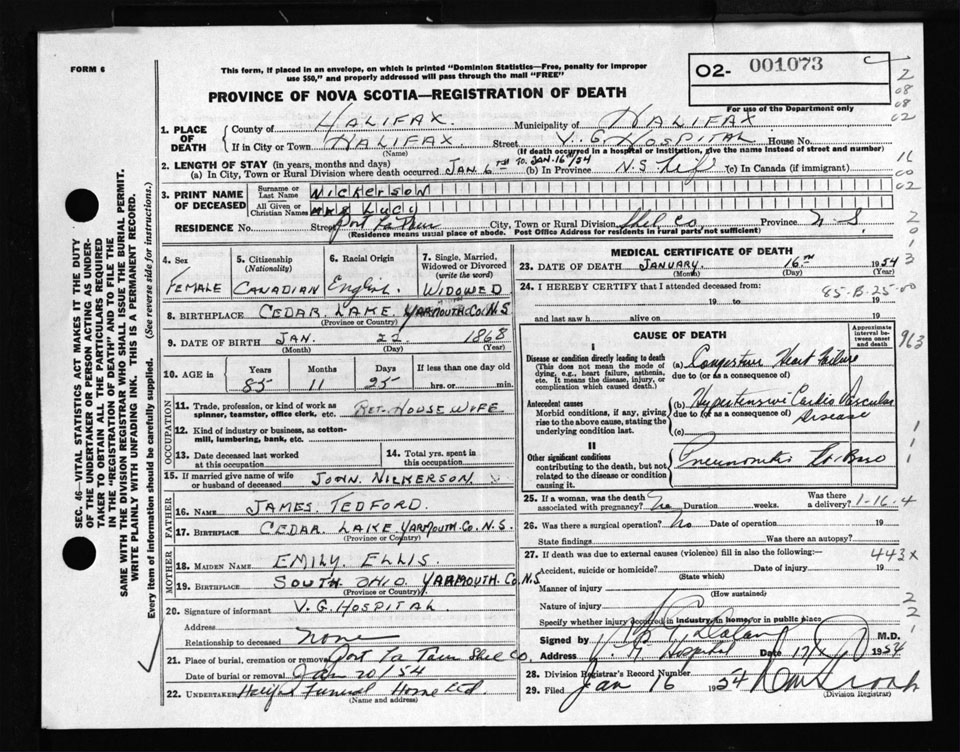 FORM 6
This form, if placed in an envelope, on which is printed "Dominion Statistics—Free, penalty for improper
use $50," and properly addressed will pass through the mail "FREE"
O2- 001073
For use of the Department only
PROVINCE OF NOVA SCOTIA—REGISTRATION OF DEATH
2
08
08
02
16
00
02
2
0
1
3
1. PLACE OF DEATH
County of HALIFAX. Municipality of HALIFAX
If in City or Town HALIFAX Street V. G HOSPITAL House No.
(Name) (If death occurred in a hospital or institution, give the name instead of street and number)
2. LENGTH OF STAY (in years, months and days)
(a) In City, Town or Rural Division where death occurred JAN 6TH TO JAN. 16TH/54 (b) In Province N.S. Life (c) In Canada (if immigrant)
3. PRINT NAME OF DECEASED
Surname or Last Name NICKERSON
All Given or Christian Names MRS LUCY
RESIDENCE No. Street City, Town or Rural Division Shel. Co. Province N-S.
(Residence means usual place of abode. Post Office Address for residents in rural parts not sufficient)
4. Sex
FEMALE
5. Citizenship (Nationality)
CANADIAN
6. Racial Origin
English
7. Single, Married, Widowed or Divorced (write the word)
WIDOWED
8. BIRTHPLACE CEDAR LAKE YARMOUTH-CO. N.S
(Province or Country)
9. DATE OF BIRTH JAN. 22 1868
(Month) (Day) (Year)
10. AGE in Years Months Days If less than one day
85 11 25 hrs. or min.
OCCUPATION
11. Trade, profession, or kind of work as spinner, teamster, office clerk, etc. RET. HOUSEWIFE
12. Kind of industry or business, as cotton-mill, lumbering, bank, etc.
13. Date deceased last worked at this occupation
14. Total yrs. spent in this occupation
15. If married give name of wife or husband of deceased JOHN. NICKERSON
FATHER
16. Name JAMES TEDFORD
17. Birthplace CEDAR LAKE YARMOUTH-CO. N.S.
(Province or Country)
MOTHER
18. MAIDEN NAME EMILY ELLIS
19. BIRTHPLACE SOUTH OHIO YARMOUTH. Co. N.S
(Province or Country)
20. Signature of informant V.G. HOSPITAL
Address
Relationship to deceased none
21. Place of burial, cremation or removal Shel Co.
Date of burial or removal Jan 20/54
22. UNDERTAKER Halifax Funeral Home Ltd.
(Name and address)
MEDICAL CERTIFICATE OF DEATH
23. DATE OF DEATH JANUARY. 16TH 1954
(Month) (Day) (Year)
24. I HEREBY CERTIFY that I attended deceased from:
85-B-25-00
19 to 19
and last saw h alive on 19
CAUSE OF DEATH
Approximate interval between onset and death
963
I
Disease or condition directly leading to death
(This does not mean the mode of dying, e.g., heart failure, asthenia, etc. It means the disease, injury, or complication which caused death.)
(a) Congestive Heart Failure
due to (or as a consequence of)
Antecedent causes
Morbid conditions, if any, giving rise to the above cause, stating the underlying condition last.
(b) Hypertensive Cardio Vascular Disease
due to (or as a consequence of)
(c)
II
Other significant conditions
contributing to the death, but not related to the disease or condition causing it.
1
1
1
25. If a woman, was the death associated with pregnancy? No Duration weeks. Was there a delivery? 1-16.4
26. Was there a surgical operation? No Date of operation 19
State findings Was there an autopsy?
27. If death was due to external causes (violence) fill in also the following:— 443x
Accident, suicide or homicide? Date of injury 19
(State which)
Manner of injury
(How sustained)
Nature of injury
2
2
1
Specify whether injury occurred in industry, in home, or in public place
Signed by M.D.
Address V. G. Hospital Date 1954
28. Division Registrar's Record Number
29. Filed Jan 16 1954
(Division Registrar)
SEC. 46—VITAL STATISTICS ACT MAKES IT THE DUTY
OF THE UNDERTAKER OR PERSON ACTING AS UNDER-
TAKER TO OBTAIN ALL THE PARTICULARS REQUIRED
IN THE "REGISTRATION OF DEATH" AND TO FILE THE
SAME WITH THE DIVISION REGISTRAR WHO SHALL ISSUE THE BURIAL PERMIT.
WRITE PLAINLY WITH UNFADING INK. THIS IS A PERMANENT RECORD.
Every item of information should be carefully supplied. (See reverse side for instructions.)